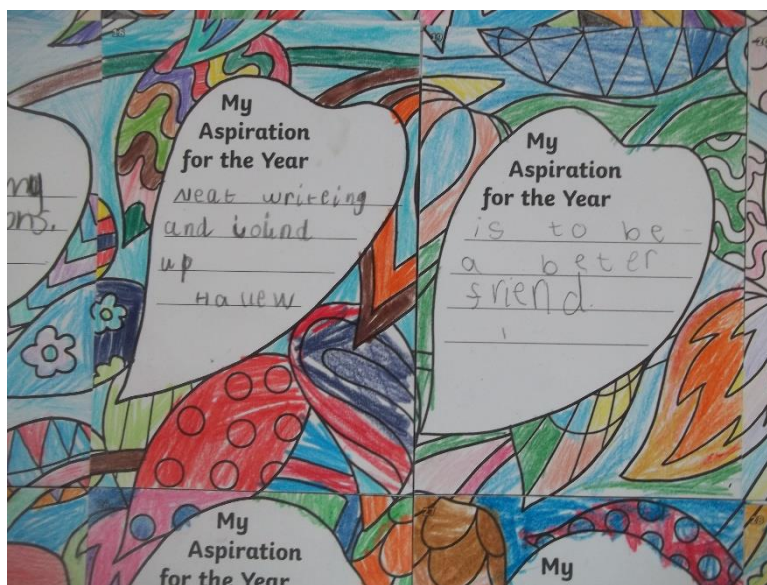 my
ons.
My
Aspiration
for the Year
Neat writeing
and
up
My
Aspiration
for the Year
is to be
a beter
friend
My
Aspiration
for the Year
My